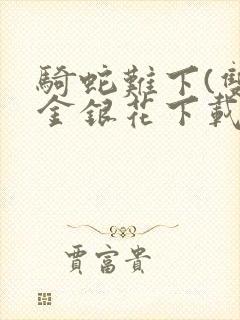 騎蛇難下(雙
金銀花下載
賈富貴